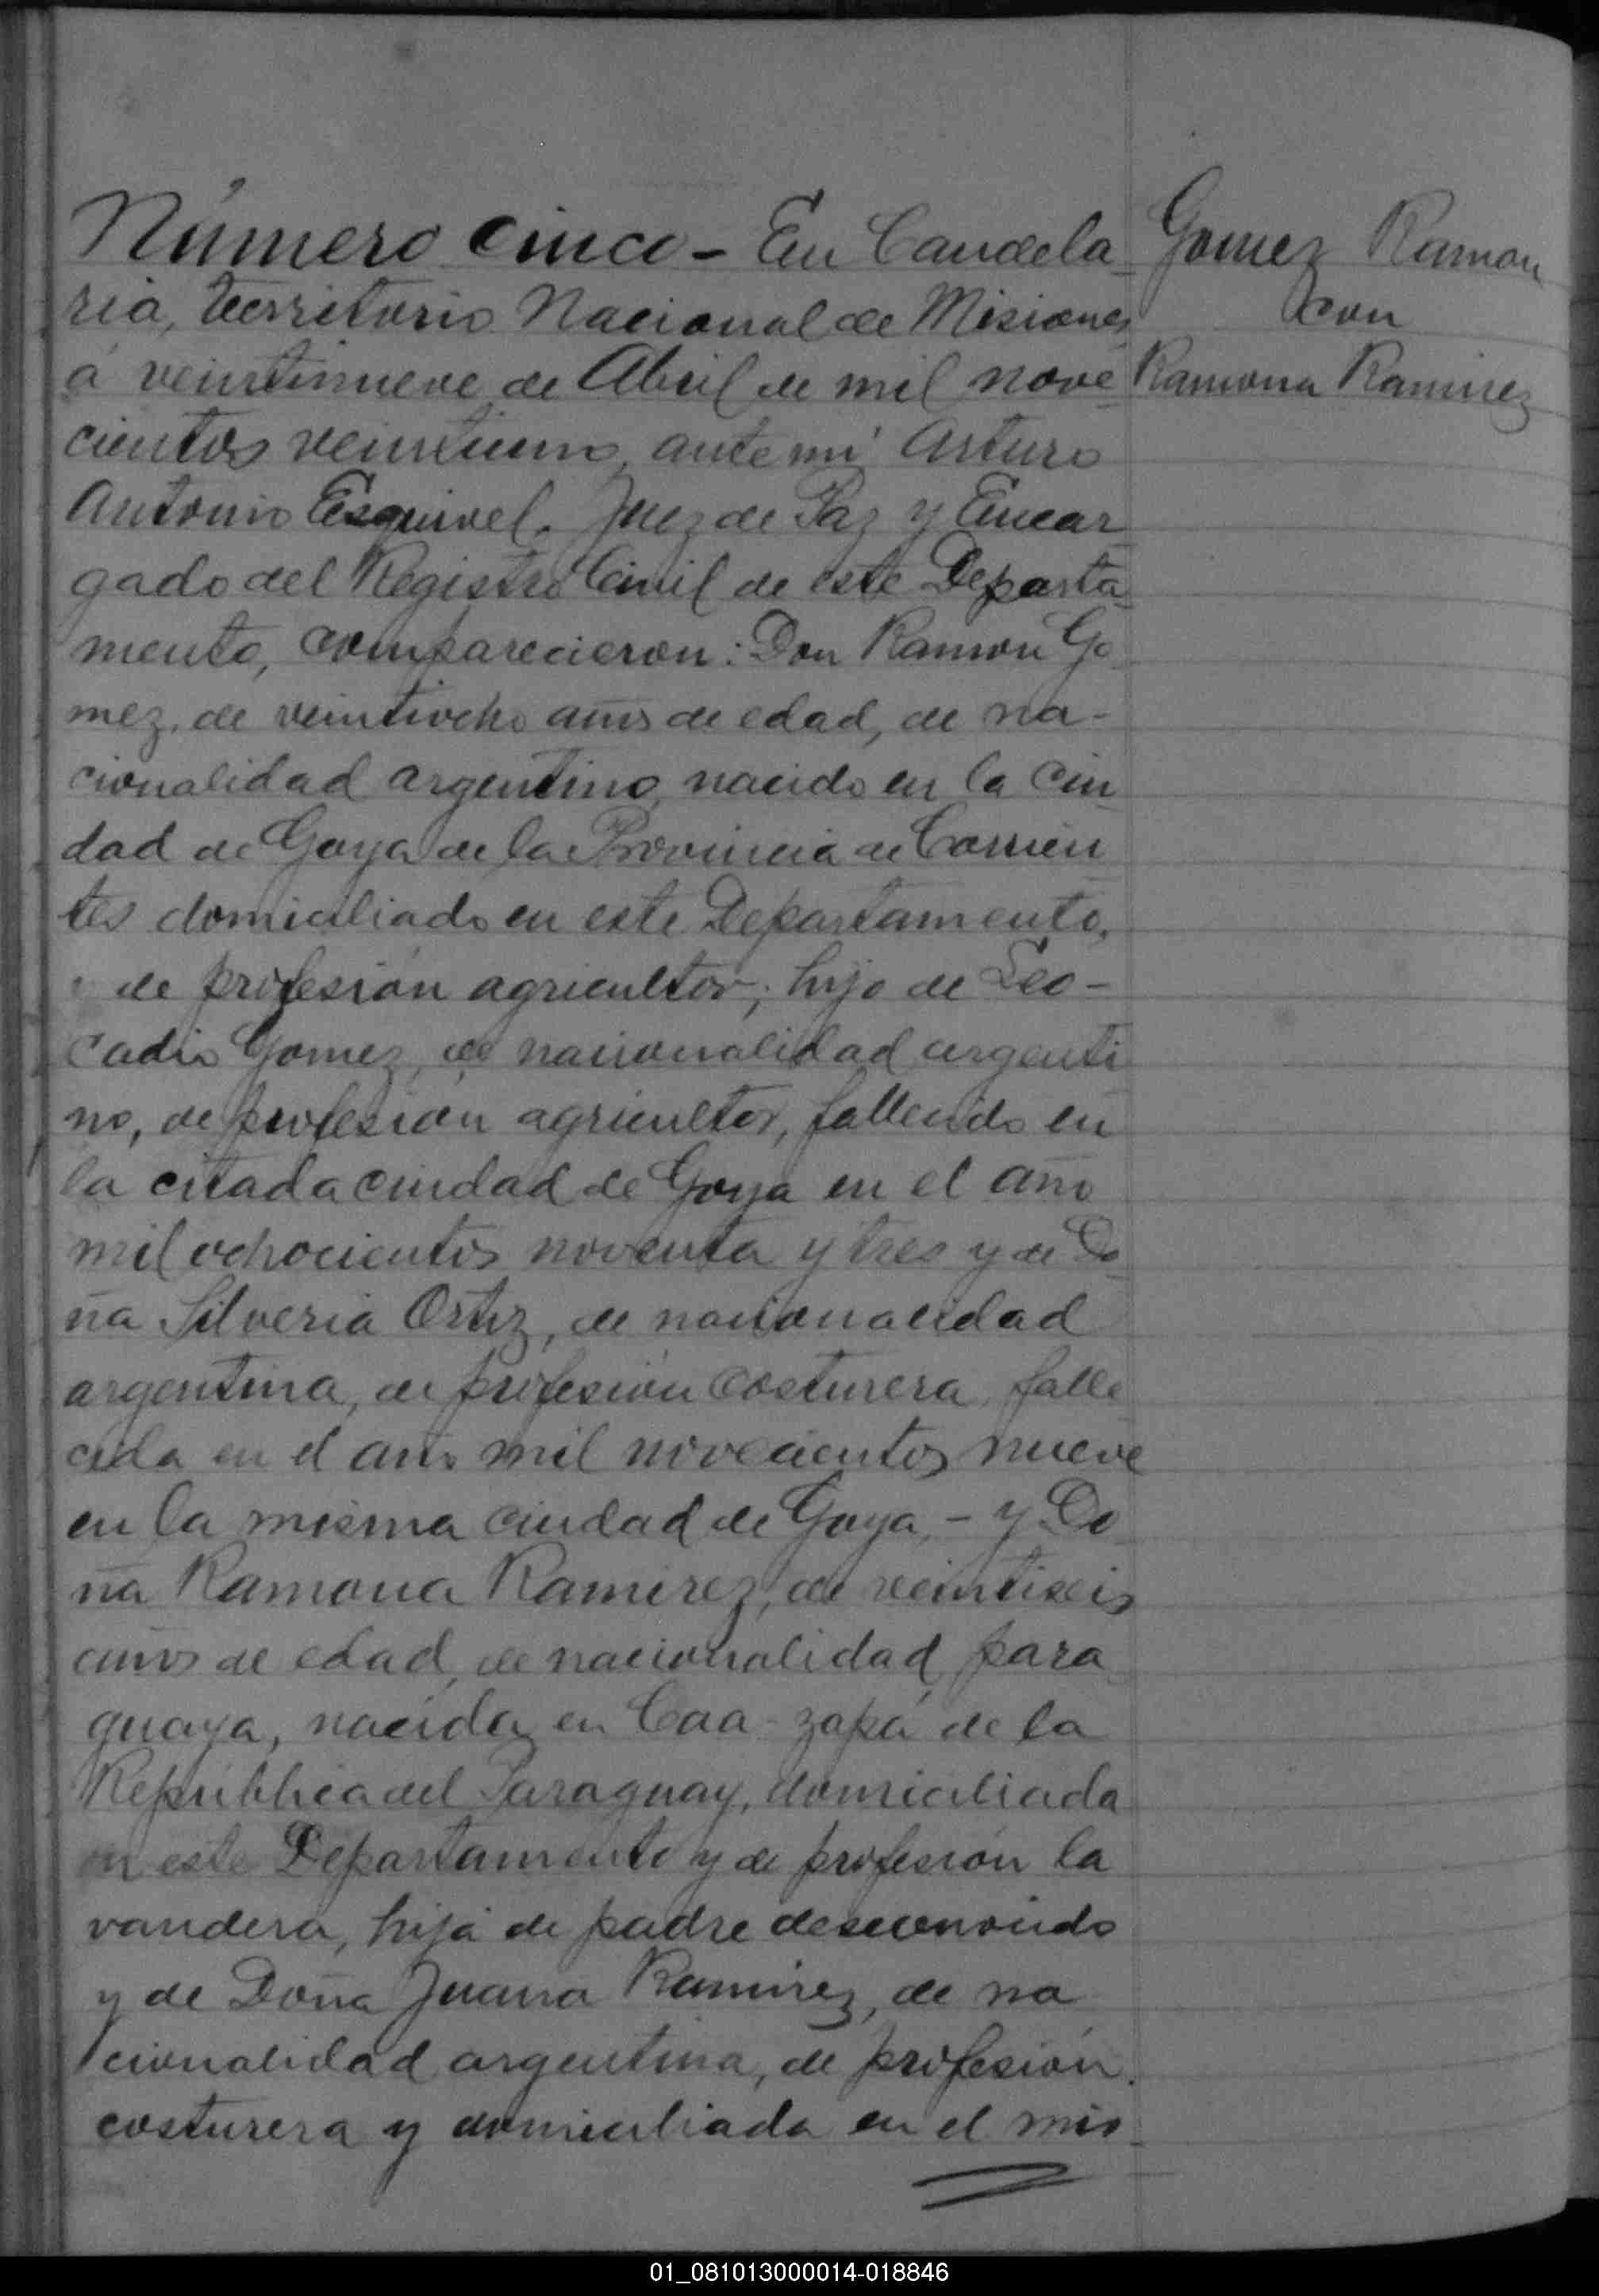 Número cinco - En Candela-
ria, territorio Nacional de Misiones
á veintinueve de Abril de mil nove-
cientos veintiuno, ante mi Arturo
Antonio Esquivel, Juez de Paz y Encar-
gado del Registro Civil de este Departa-
mento, comparecieron: Don Ramon Go-
mez, de veintiocho años de edad, de na-
cionalidad argentino, nacido en la ciu-
dad de Goya de la Provincia de Corrien-
tes domiciliado en este Departamento,
de profesión agricultor; hijo de Leo-
cadio Gomez, de nacionalidad argenti
no, de profesión agricultor, fallecido en
la citada ciudad de Goya en el año
mil ochocientos noventa y tres y de Do-
ña Silveria Ortiz, de nacionalidad
argentina, de profesión costurera, falle-
cida en el año mil novecientos nueve
en la misma ciudad de Goya, - y Do-
ña Ramona Ramirez, de veintiseis
años de edad, de nacionalidad para-
guaya, nacida en Caa-zapá de la
República del Paraguay, domiciliada
en este Departamento y de profesión la
vandera, hija de padre desconocido
y de Doña Juana Ramirez, de na
cionalidad argentina, de profesión
costurera y domiciliada en el mis-
Gomez Ramon
con
Ramona Ramirez
01_081013000014-018846